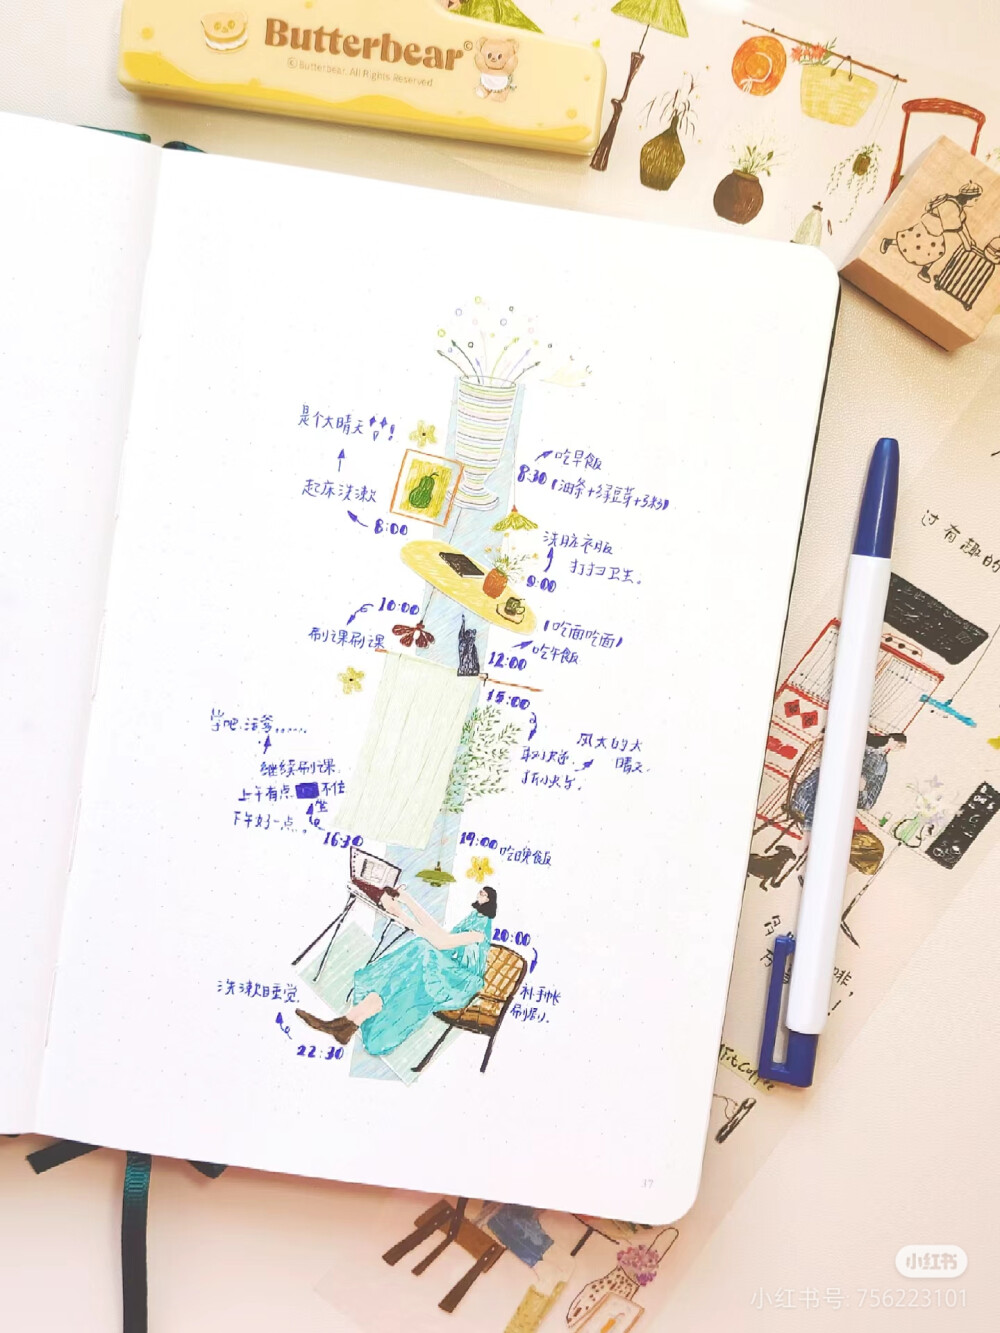 Butterbear©
© Butterbear. All Rights Reserved
是个大晴天
起床洗漱
8:00
吃早饭
8:30 (油条+绿豆芽+粥)
洗脏衣服
打扫卫生.
9:00
10:00
刷课刷课
(吃面吃面)
吃午饭
12:00
15:00
取快递.
拆小火车.
风大的大
晴天.
学吧.活爹......
继续刷课.
上午有点 不住
坐
下午好一点.
16:30
19:00 吃晚饭
20:00
补手帐
刷剧.
洗漱睡觉.
22:30
37
过有趣的
小红书
小红书号: 756223101